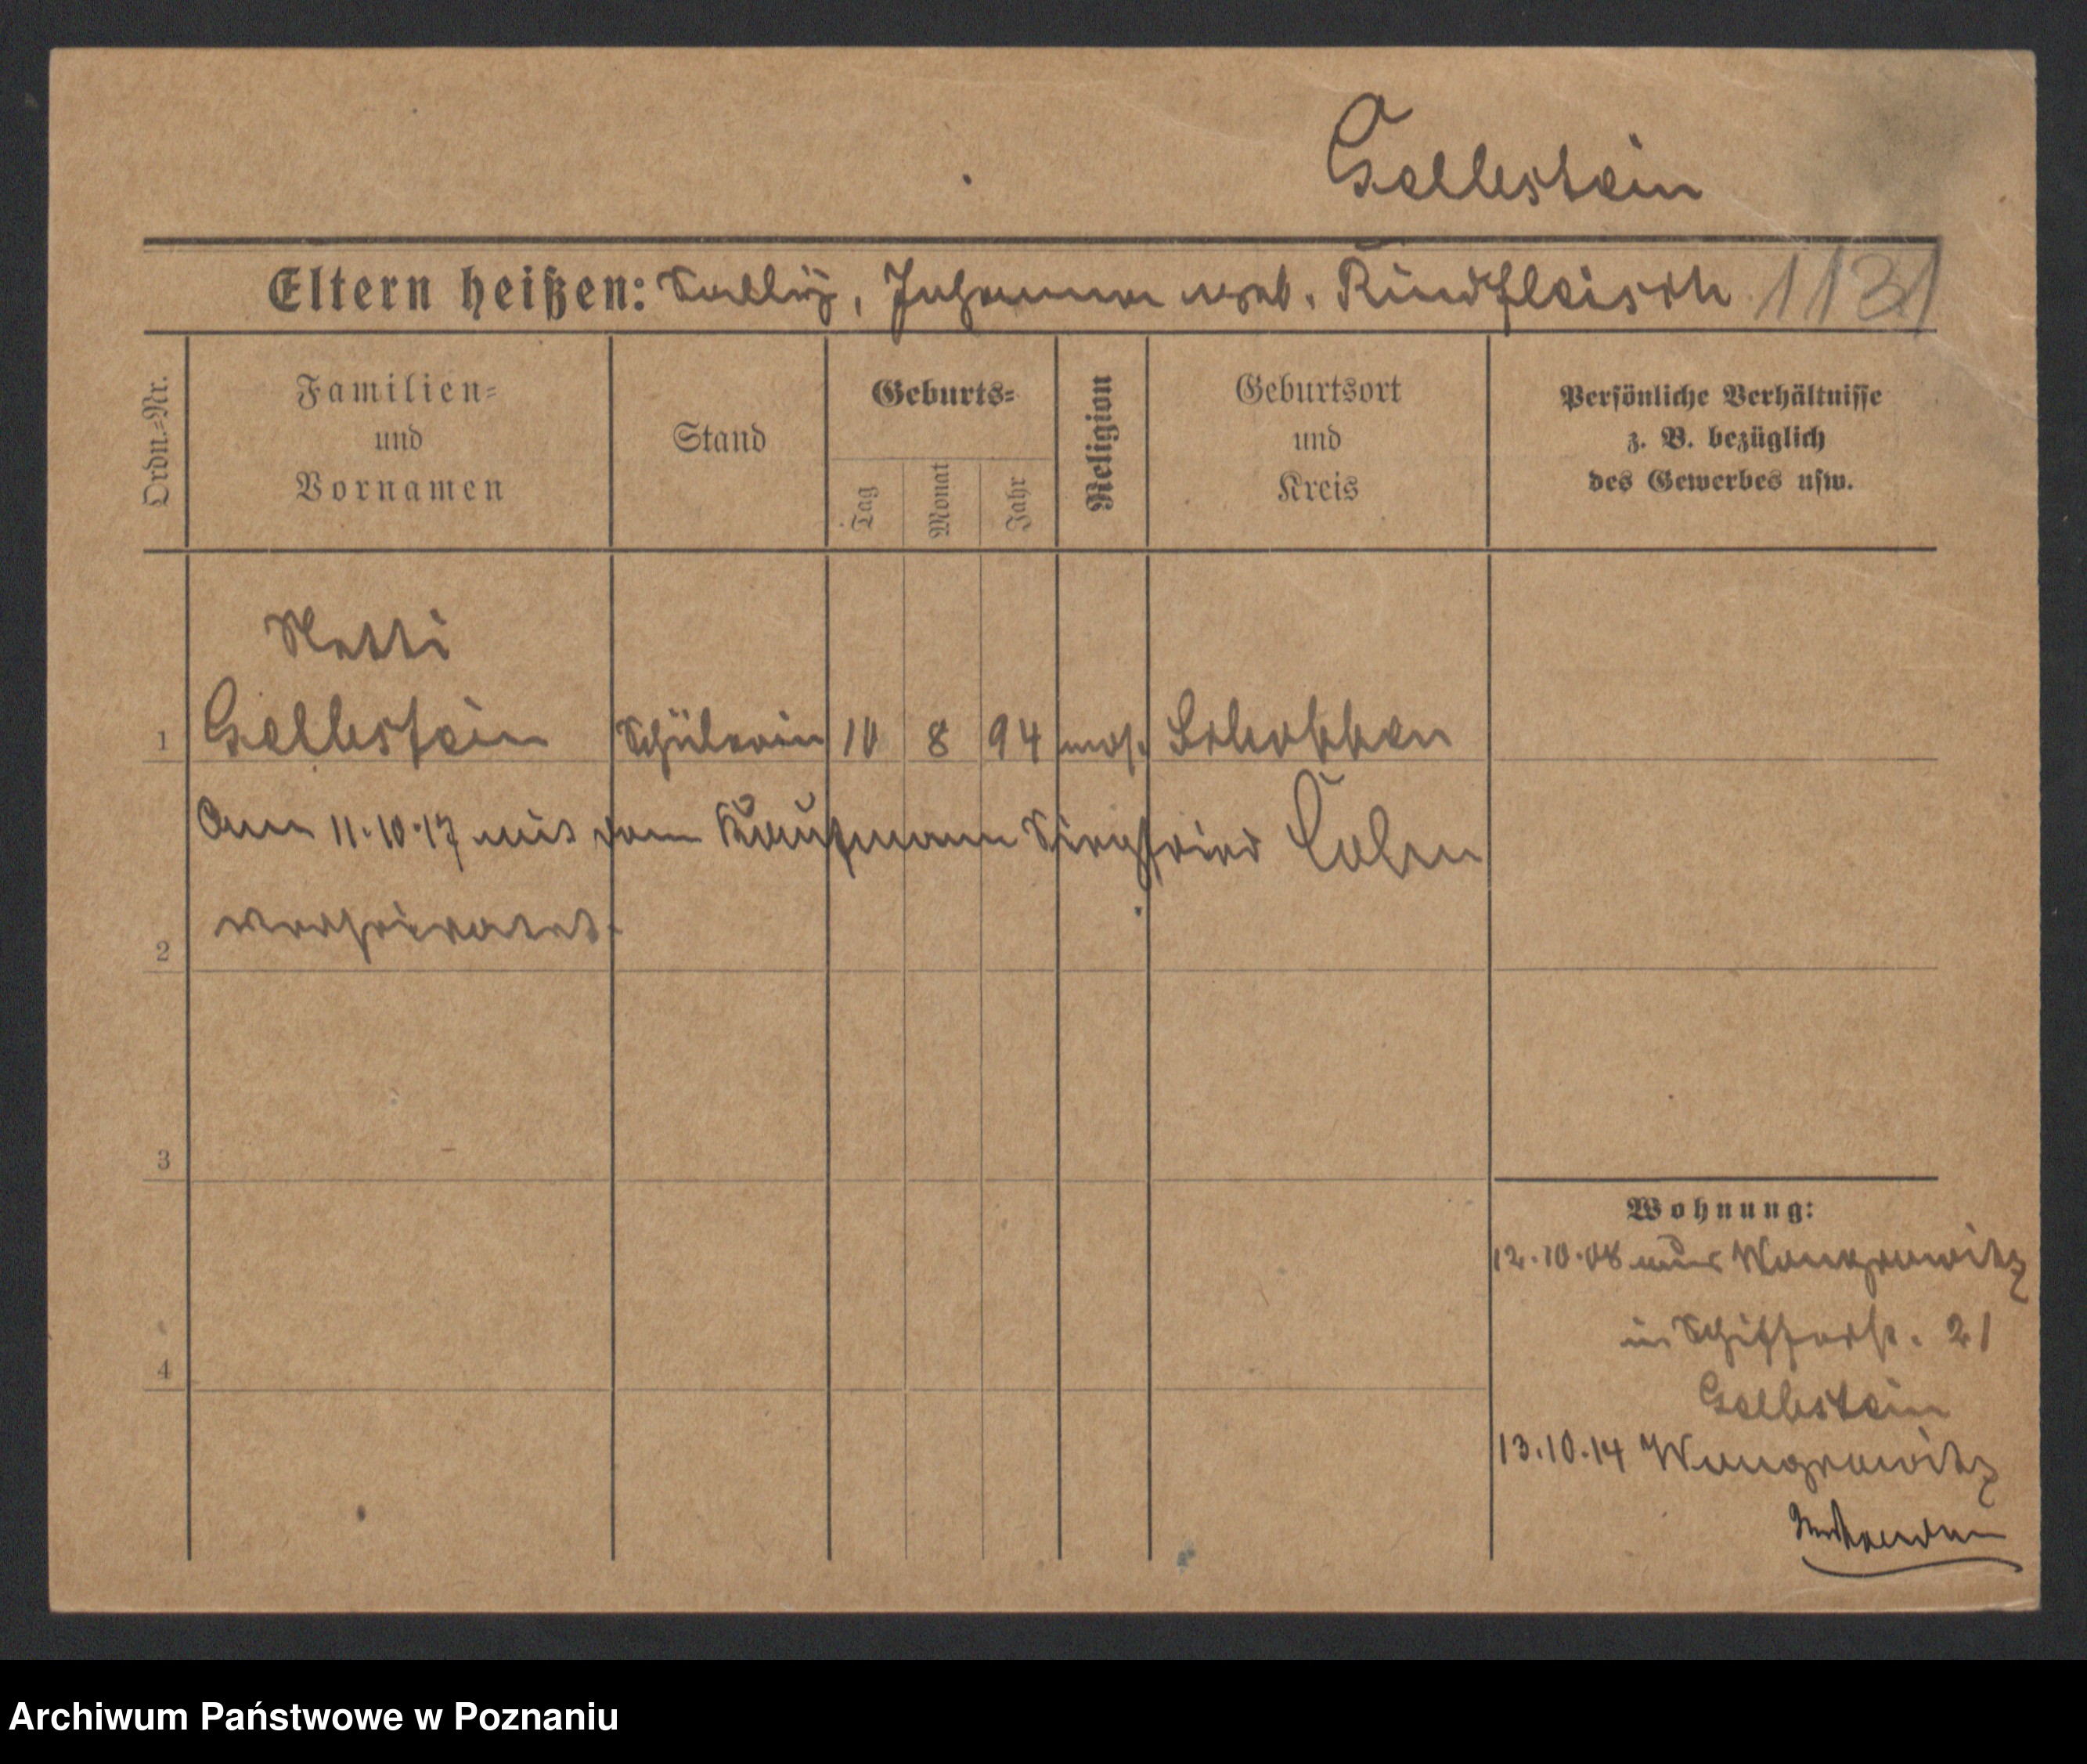 Gellestein
Eltern heißen: Sally, Johanna geb. Rindfleisch 1131
Ordn.=Nr.
Familien=
und
Vornamen
Stand
Geburts=
Tag
Monat
Jahr
Religion
Geburtsort
und
Kreis
Persönliche Verhältnisse
z. B. bezüglich
des Gewerbes usw.
Netti
1 Gellestein Schülerin 10 8 94 mos. Schokken
Am 11.10.17 mit dem Kaufmann Siegfried Cohn
2 verheiratet.
3
4
Wohnung:
12.10.08 aus Wongrowitz
in Schifferstr. 21
Gellestein
13.10.14 Wongrowitz
Archiwum Państwowe w Poznaniu